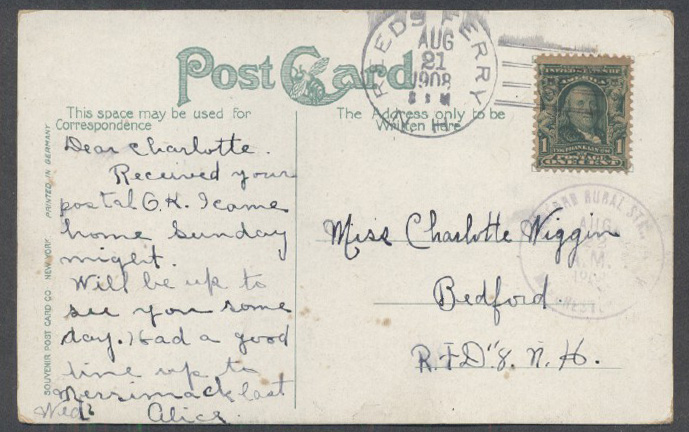 REEDS FERRY
AUG
21
1908
N.H.
Post Card
This space may be used for
Correspondence
The Address only to be
Written Here
UNITED STATES
1 1
FRANKLIN
POSTAGE
ONE CENT
Dear Charlotte.
Received your
postal O.K. I came
home Sunday
night.
Will be up to
see you some
day. Had a good
time up to
Merrimack last
Wed? Alice.
Miss Charlotte Wiggin
Bedford
R.F.D."8. N.H.
RURAL STA.
AUG
A.M.
PRINTED IN GERMANY
SOUVENIR POST CARD CO NEW YORK